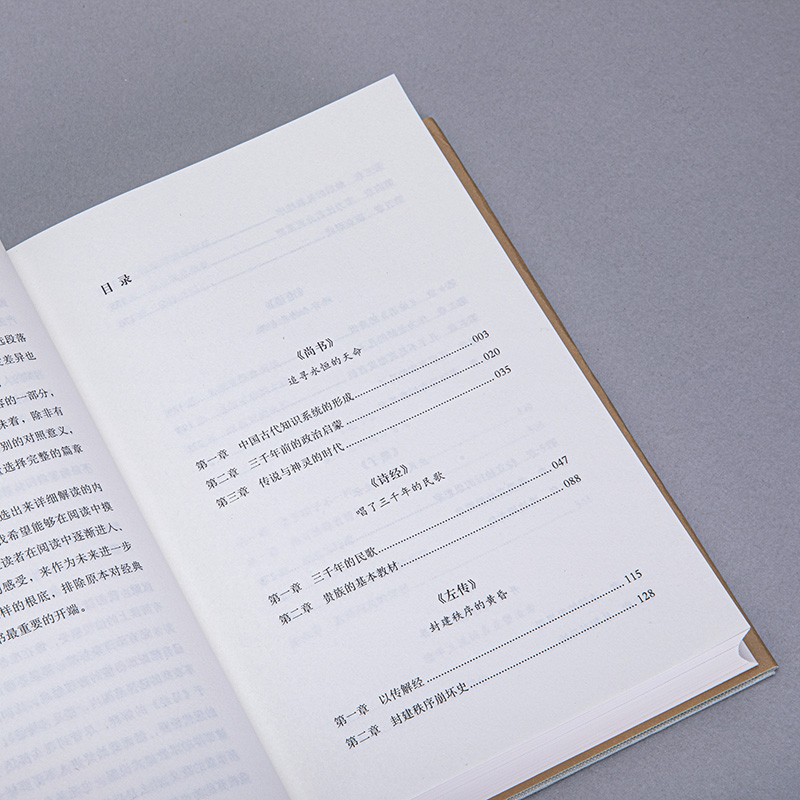 选段落
差异也
容的一部分，
味着，除非有
别的对照意义，
选择完整的篇章
选出来详细解读的内
我希望能够在阅读中摸
读者在阅读中逐渐进入、
的感受，来作为未来进一步
样的根底，排除原本对经典
书最重要的开端。
目 录
《尚书》
追寻永恒的天命
第一章 中国古代知识系统的形成 003
第二章 三千年前的政治启蒙 020
第三章 传说与神灵的时代 035
《诗经》
唱了三千年的民歌
第一章 三千年的民歌 047
第二章 贵族的基本教材 088
《左传》
封建秩序的黄昏
第一章 以传解经 115
第二章 封建秩序崩坏史 128